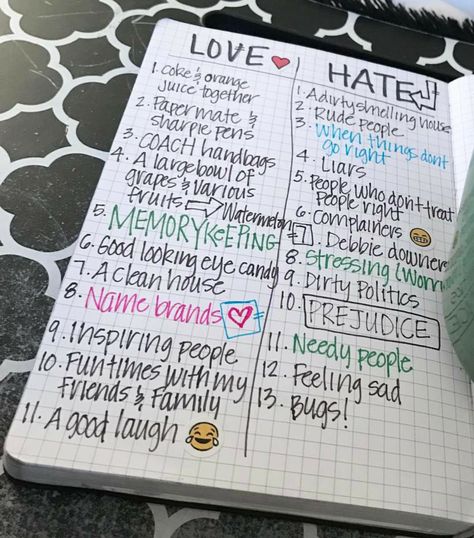 LOVE
1. Coke & orange
juice together
2. Papermate &
sharpie pens
3. COACH handbags
4. A large bowl of
grapes & various
fruits → Watermelon
5. MEMORYKEEPING
6. Good looking eye candy
7. A clean house
8. Name brands
9. Inspiring people
10. Fun times with my
friends & Family
11. A good laugh
HATE
1. A dirty smelling house
2. Rude people
3. When things dont
go right
4. Liars
5. People who dont treat
People right
6. Complainers
7. Debbie downers
8. Stressing (Worry
9. Dirty Politics
10. PREJUDICE
11. Needy people
12. Feeling sad
13. Bugs!